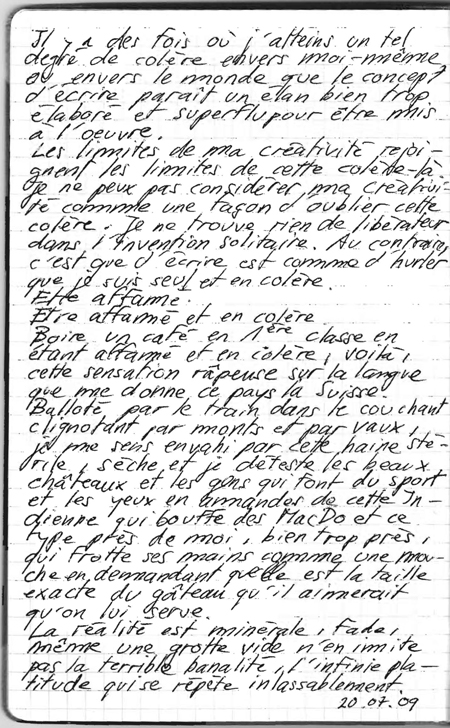 Il y a des fois où j'atteins un tel
degré de colère envers moi-même
ou envers le monde que le concept
d'écrire paraît un élan bien trop
élaboré et superflu pour être mis
à l'oeuvre.
Les limites de ma créativité rejoi-
gnent les limites de cette colère-là.
Je ne peux pas considérer ma créativi-
té comme une façon d'oublier cette
colère. Je ne trouve rien de libérateur
dans l'invention solitaire. Au contraire,
c'est que d'écrire est comme d'hurler
que je suis seul et en colère.
Etre affamé.
Etre affamé et en colère
Boire un café en 1ère classe en
étant affamé et en colère, voilà,
cette sensation râpeuse sur la langue
que me donne ce pays la Suisse.
Balloté par le train dans le couchant
clignotant par monts et par vaux,
je me sens envahi par cette haine sté-
rile, sèche, et je déteste les beaux
châteaux et les gens qui font du sport
et les yeux en amandes de cette In-
dienne qui bouffe des MacDo et ce
type près de moi, bien trop près,
qui frotte ses mains comme une mou-
che en demandant quelle est la taille
exacte du gâteau qu'il aimerait
qu'on lui serve.
La réalité est minérale, fade,
même une grotte vide n'en imite
pas la terrible banalité, l'infinie pla-
titude qui se répète inlassablement.
20.07.09